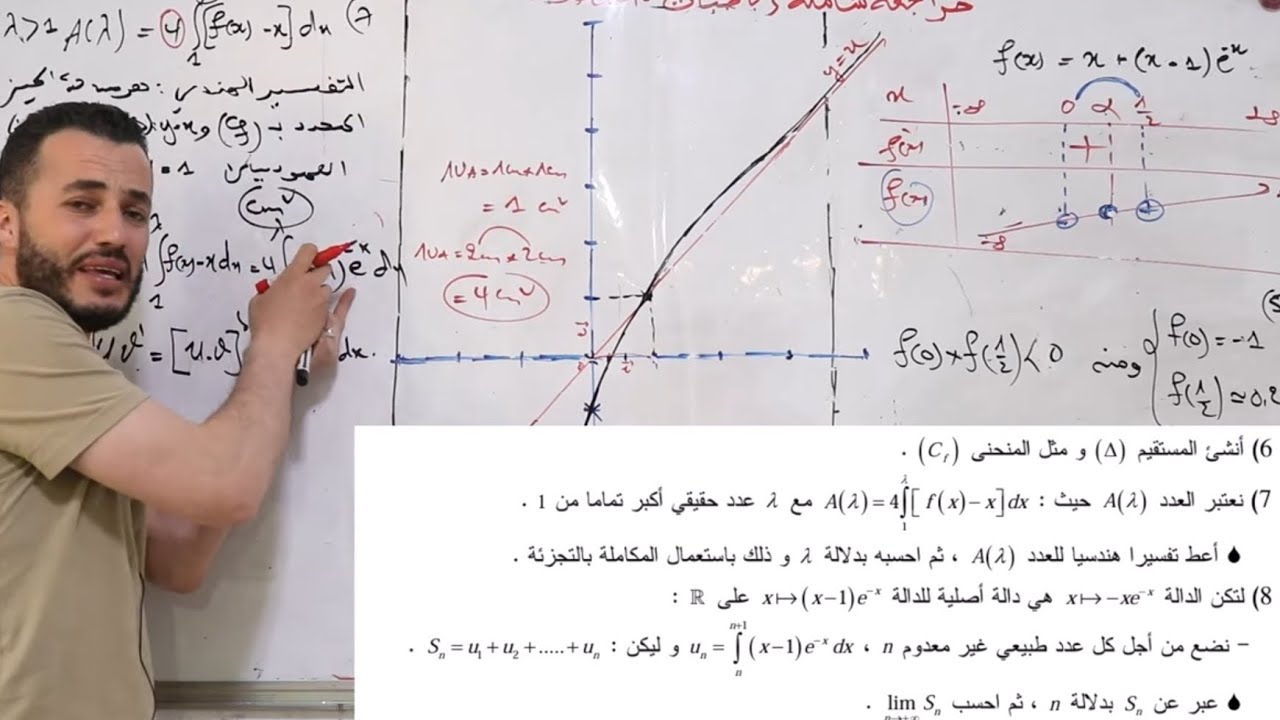 مراجعة شاملة رياضيات
λ>1 A(λ) = 4∫₁ [f(x) -x] dx (7
التفسير الهندسي :
المحدد بـ (Cf) و y=x
= 1
cm²
∫₁^λ f(x)-x dx = 4 e^-x dx
= [u.v] dx.
1UA=1cm×1cm
= 1 cm²
1UA=2cm×2cm
= 4cm²
y=x
f(x) = x + (x-1)e^-x
x -∞ 0 α 1/2 +∞
f'(x) +
f(x) -∞
f(0) × f(1/2) < 0 ومنه { f(0) = -1
f(1/2) ≈ 0,2
6) أنشئ المستقيم (Δ) و مثل المنحنى (C_f) .
7) نعتبر العدد A(λ) حيث : A(λ) = 4∫₁^λ [f(x) − x]dx مع λ عدد حقيقي أكبر تماما من 1 .
♦ أعط تفسيرا هندسيا للعدد A(λ) ، ثم احسبه بدلالة λ و ذلك باستعمال المكاملة بالتجزئة .
8) لتكن الدالة x ↦ −xe^−x هي دالة أصلية للدالة x ↦ (x−1)e^−x على ℝ :
− نضع من أجل كل عدد طبيعي غير معدوم n ، u_n = ∫_n^{n+1} (x−1)e^−x dx و ليكن : S_n = u_1 + u_2 + ..... + u_n .
♦ عبر عن S_n بدلالة n ، ثم احسب lim_{n→+∞} S_n .